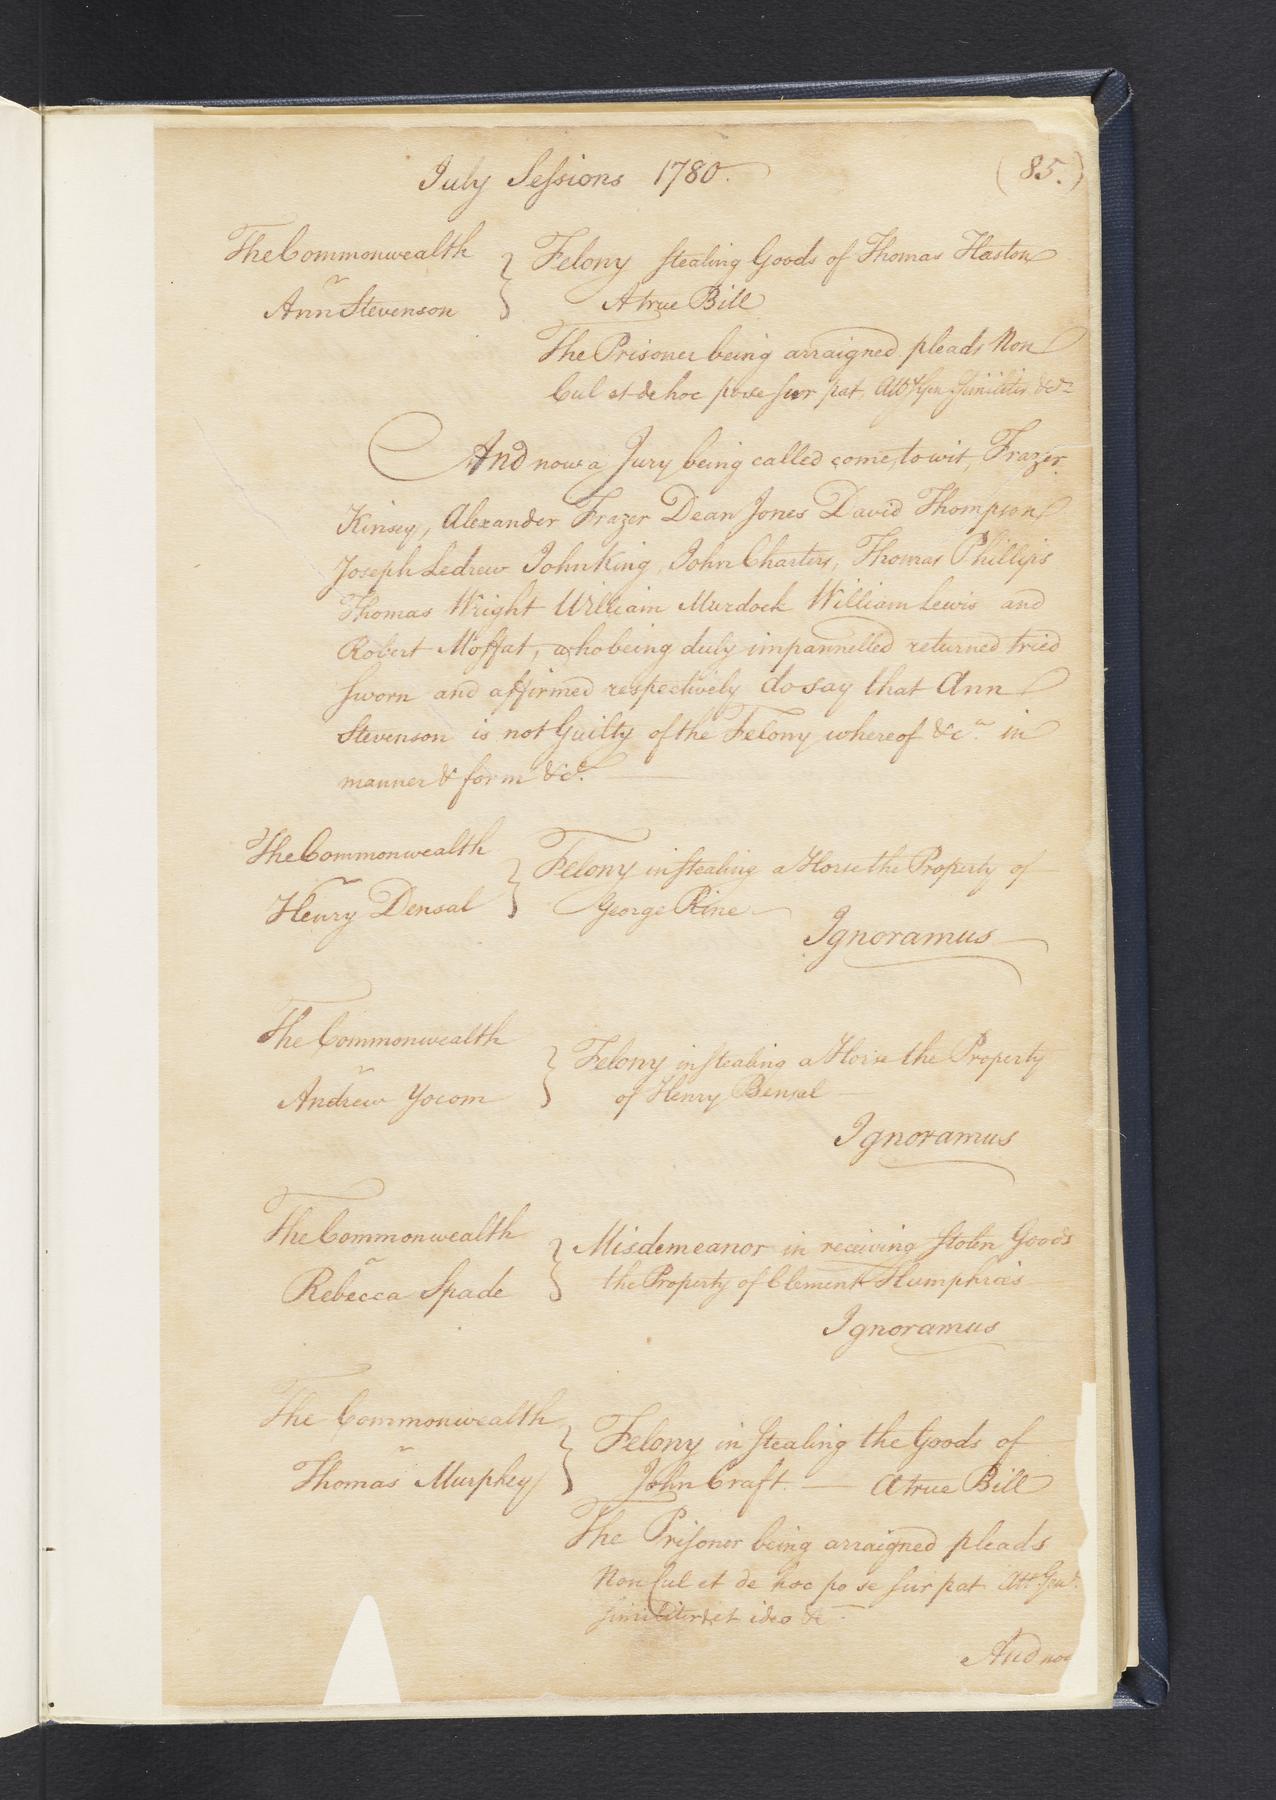 July Sessions 1780.
(85.)
The Commonwealth
v
Ann Stevenson
Felony stealing Goods of Thomas Haston
A true Bill
The Prisoner being arraigned pleads Non
Cul et de hoc po se sur pat. Att Gen Similiter &ca
And now a Jury being called come, to wit, Frazer
Kinsey, Alexander Frazer Dean Jones David Thompson
Joseph Ledrew John King, John Charters, Thomas Phillips
Thomas Wright William Murdock William Lewis and
Robert Moffat, who being duly impannelled returned tried
sworn and affirmed respectively do say that Ann
Stevenson is not Guilty of the Felony whereof &ca in
manner & form &ca.
The Commonwealth
v
Henry Densal
Felony in stealing a Horse the Property of
George Rine
Ignoramus
The Commonwealth
v
Andrew Yocom
Felony in stealing a Horse the Property
of Henry Bensel
Ignoramus
The Commonwealth
v
Rebecca Spade
Misdemeanor in receiving stolen Goods
the Property of Clement Humphries
Ignoramus
The Commonwealth
v
Thomas Murphey
Felony in stealing the Goods of
John Craft. — A true Bill
The Prisoner being arraigned pleads
Non Cul et de hoc po se sur pat Att Genl.
similiter et ideo &c
And now